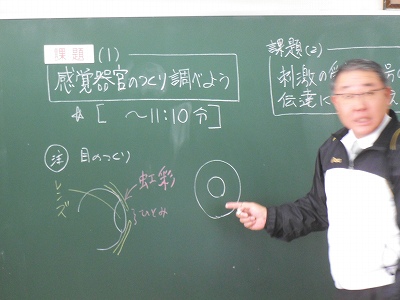 課題 (1)
感覚器官のつくり調べよう
☆ [ ～11:10分 ]
注 目のつくり
レンズ
虹彩
ひとみ
課題(2)
刺激の
伝達に